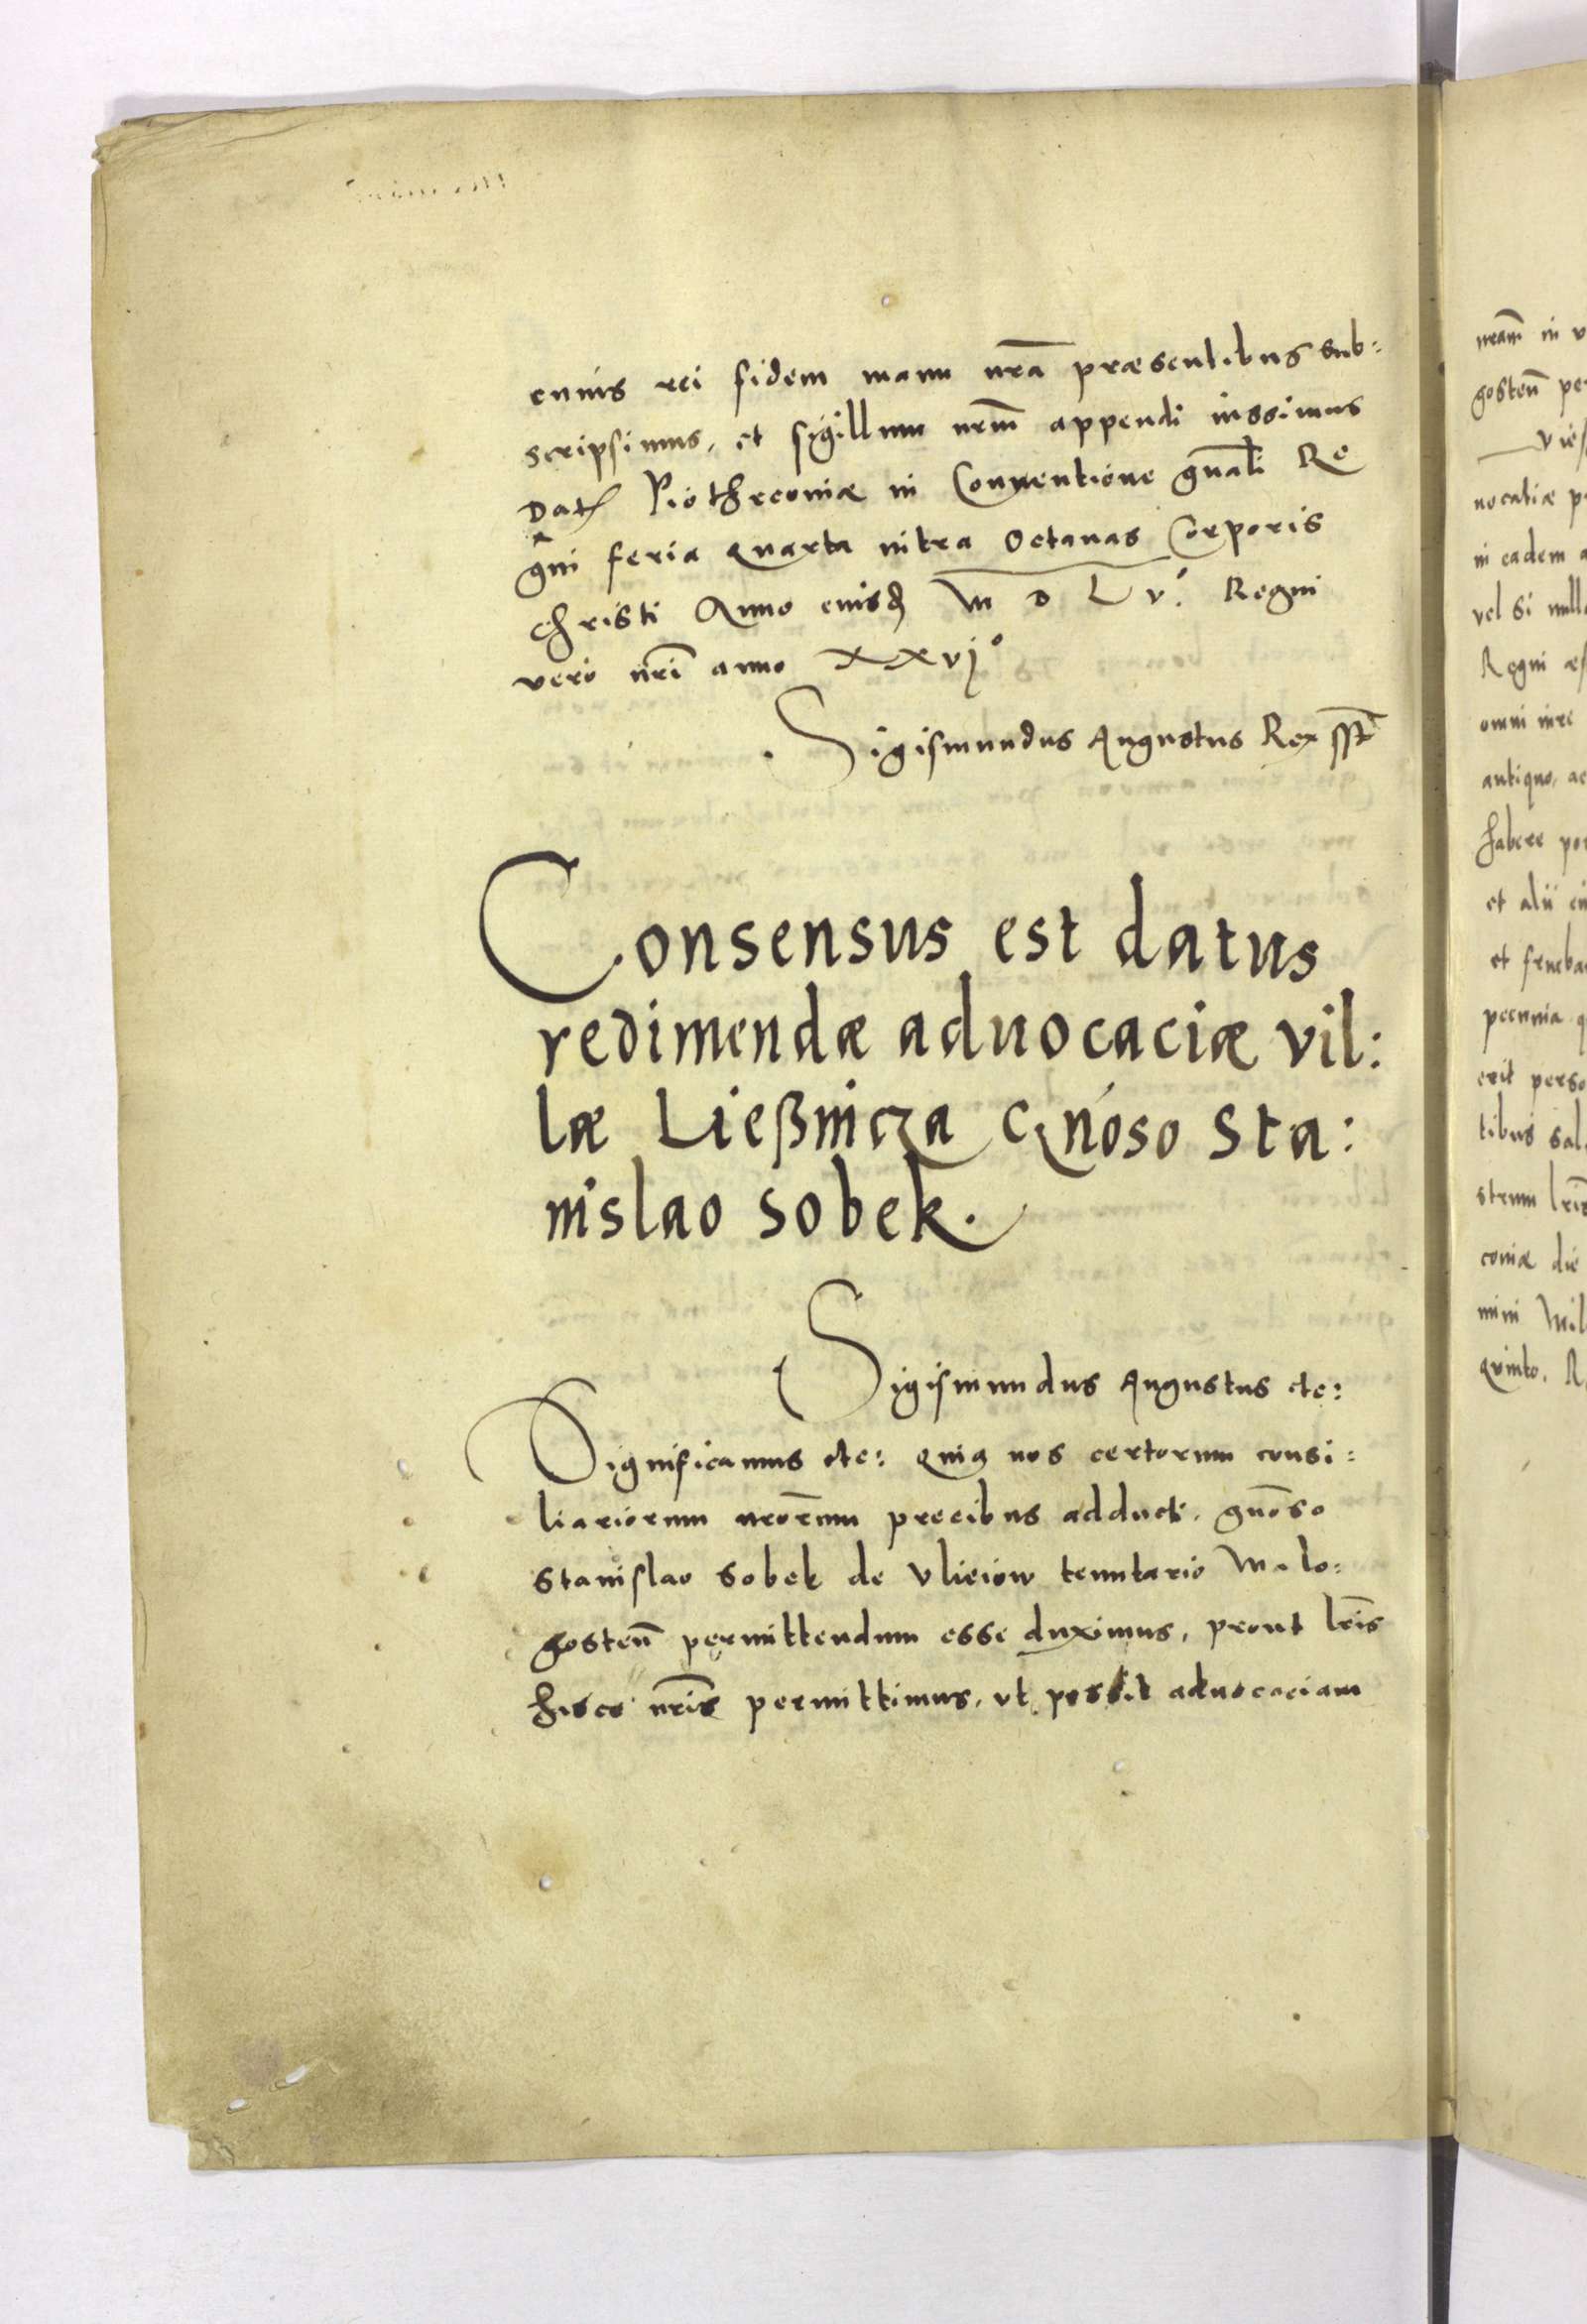 cuius rei fidem manu nrã præsentibus sub=
scripsimus, et sygillum nrm̃ appendi iussimus
Dat. Piothrconiæ in Conuentione gnãli Re
gni feria quarta intra octauas Corporis
christi Anno eiusd. M D L v.° Regni
vero nrĩ anno XXvj°
Sigismundus Augustus Rex sst̃
Consensus est datus
redimendæ aduocaciæ vil:
læ Ließnicza Gnóso Sta:
nislao Sobek.
Sigismundus Augustus etc:
Significamus etc: quia nos certorum consi=
liariorum nrõrum precibus adducti, gnõso
Stanislao Sobek de Sulieiow tenutario Malo=
gosteñ permittendum esse duximus, prout lrĩs
hisce nrĩs permittimus, vt possit aduocaciam
nram̃ in v
gosteñ pe
nocatiæ p
in eadem a
vel si null
Regni
omni iure
antiquo, ac
habere po
et alii
et frueba
pecunia q
erit perso
tibus sal
strum
coniæ die
mini Mil
quinto. R